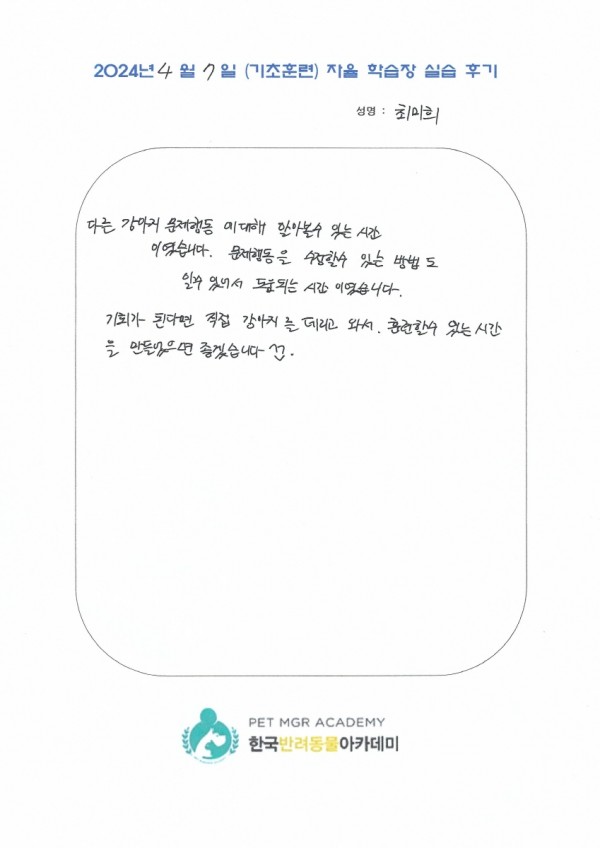 2024년 4 월 7 일 (기초훈련) 자율 학습장 실습 후기
성명 : 최미희
다른 강아지 문제행동 에대해 알아볼수 있는 시간
이였습니다. 문제행동을 수정할수 있는 방법 도
알수 있어서 도움되는 시간 이였습니다.
기회가 된다면 직접 강아지 를 데리고 와서. 훈련할수 있는 시간
을 만들었으면 좋겠습니다
PET MGR ACADEMY
한국반려동물아카데미